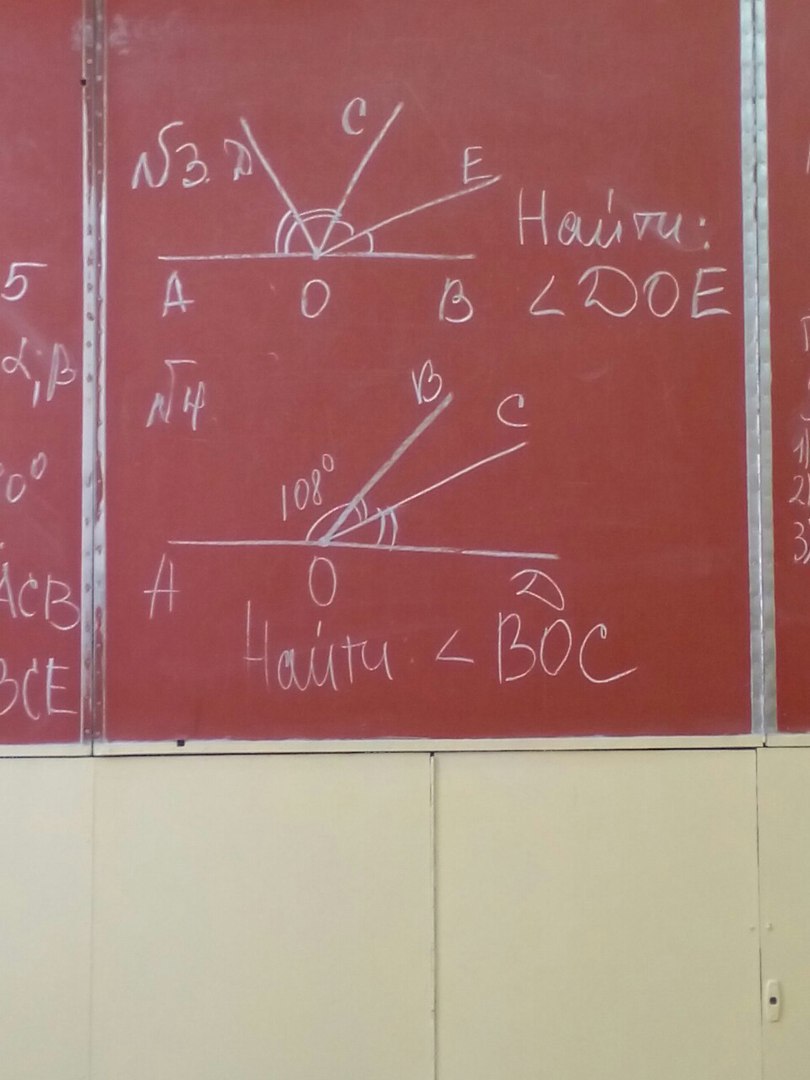 5
α, β
0°
ACB
BCE
№3. D C E
A O B
Найти:
<DOE
№4 B C
108°
A O D
Найти <BOC
1)
2
3